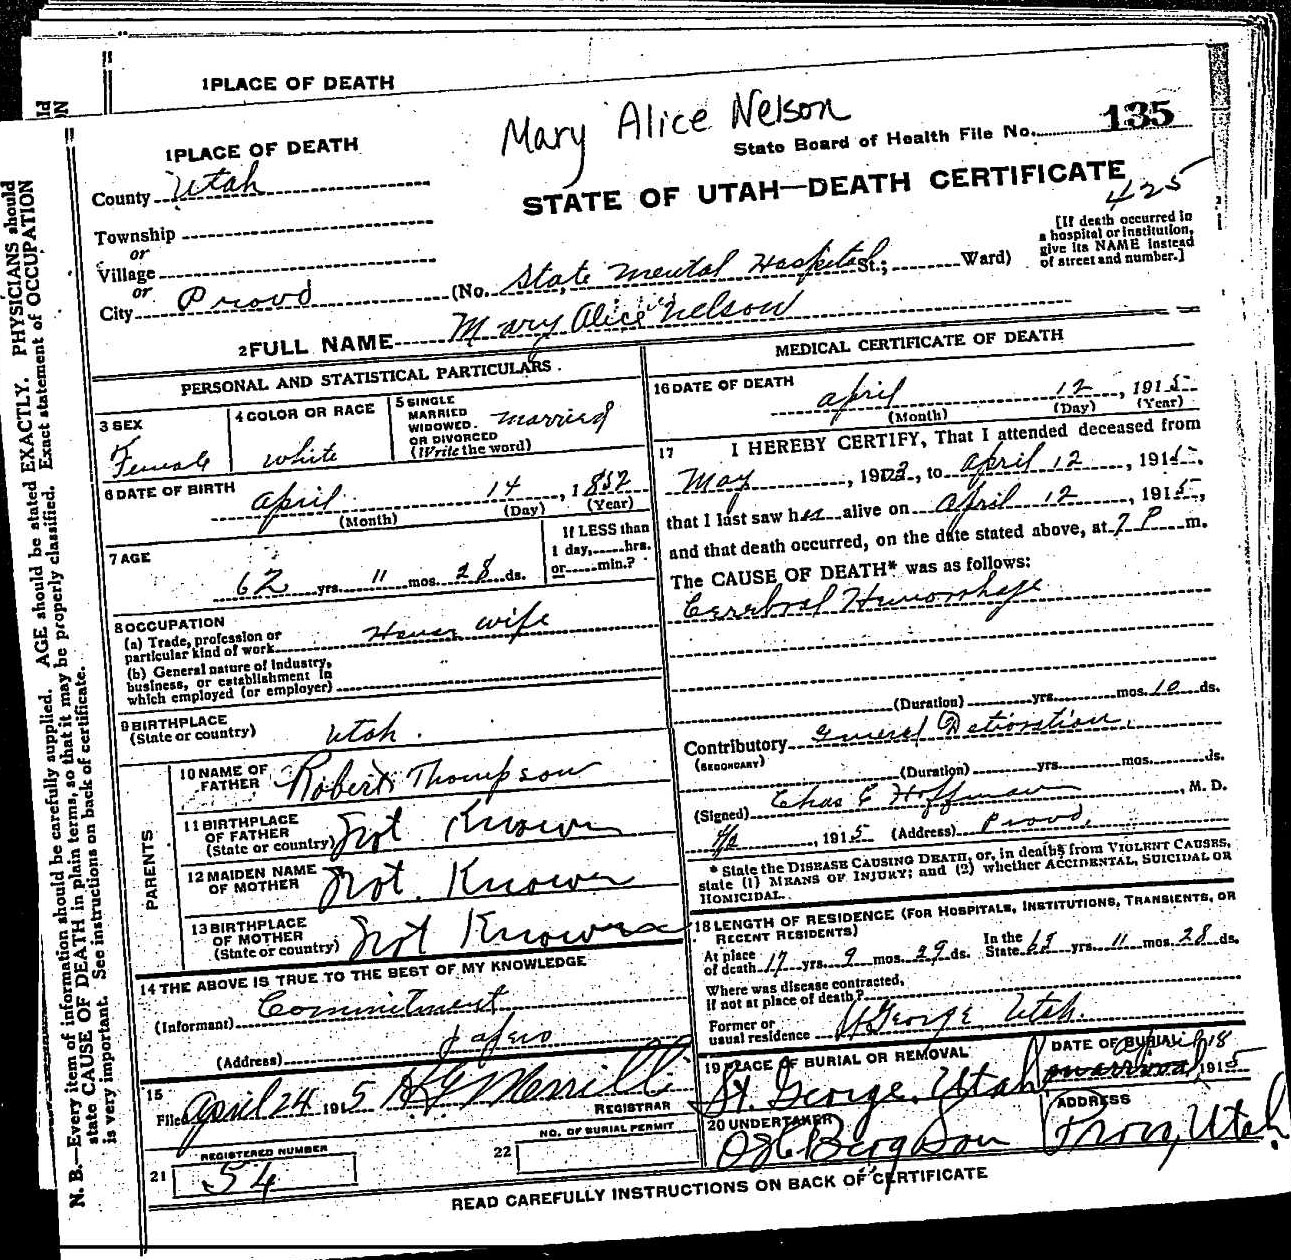 1 PLACE OF DEATH
Mary Alice Nelson
State Board of Health File No. 135
1 PLACE OF DEATH
County Utah
STATE OF UTAH—DEATH CERTIFICATE
425
Township
or
Village
or
City Provo
(No. State Mental Hospital St.; Ward)
[If death occurred in
a hospital or institution,
give its NAME instead
of street and number.]
2 FULL NAME Mary Alice Nelson
PERSONAL AND STATISTICAL PARTICULARS.
3 SEX
Female
4 COLOR OR RACE
White
5 SINGLE
MARRIED
WIDOWED.
OR DIVORCED
(Write the word)
Married
6 DATE OF BIRTH
April 14, 1852
(Month) (Day) (Year)
7 AGE
62 yrs. 11 mos. 28 ds.
If LESS than
1 day, hrs.
or min.?
8 OCCUPATION
(a) Trade, profession or
particular kind of work House wife
(b) General nature of Industry,
business, or establishment in
which employed (or employer)
9 BIRTHPLACE
(State or country)
Utah.
PARENTS
10 NAME OF
FATHER
Robert Thompson
11 BIRTHPLACE
OF FATHER
(State or country)
Not Known
12 MAIDEN NAME
OF MOTHER
Not Known
13 BIRTHPLACE
OF MOTHER
(State or country)
Not Known
14 THE ABOVE IS TRUE TO THE BEST OF MY KNOWLEDGE
(Informant) Commitment
(Address) papers
15
Filed April 24 1915
Merrill
REGISTRAR
REGISTERED NUMBER
21 54
NO. OF BURIAL PERMIT
22
MEDICAL CERTIFICATE OF DEATH
16 DATE OF DEATH
April 12, 1915
(Month) (Day) (Year)
17 I HEREBY CERTIFY, That I attended deceased from
May, 1903, to April 12, 1915,
that I last saw her alive on April 12, 1915,
and that death occurred, on the date stated above, at 7 P m.
The CAUSE OF DEATH* was as follows:
Cerebral Hemorrhage
(Duration) yrs. mos. 10 ds.
Contributory General Detioration.
(SECONDARY)
(Duration) yrs. mos. ds.
(Signed) Chas E Hoffman, M. D.
, 1915 (Address) Provo,
* State the DISEASE CAUSING DEATH, or, in deaths from VIOLENT CAUSES,
state (1) MEANS OF INJURY; and (2) whether ACCIDENTAL, SUICIDAL OR
HOMICIDAL.
18 LENGTH OF RESIDENCE (FOR HOSPITALS, INSTITUTIONS, TRANSIENTS, OR
RECENT RESIDENTS)
At place
of death 17 yrs. 9 mos. 29 ds.
In the
State yrs. 11 mos. 28 ds.
Where was disease contracted,
if not at place of death?
Former or
usual residence St George Utah.
19 PLACE OF BURIAL OR REMOVAL
St. George, Utah
DATE OF BURIAL
April 18
1915
20 UNDERTAKER
Berg & Son
ADDRESS
Provo, Utah
READ CAREFULLY INSTRUCTIONS ON BACK OF CERTIFICATE
N. B.—Every item of information should be carefully supplied. AGE should be stated EXACTLY. PHYSICIANS should
state CAUSE OF DEATH in plain terms, so that it may be properly classified. Exact statement of OCCUPATION
is very important. See instructions on back of certificate.